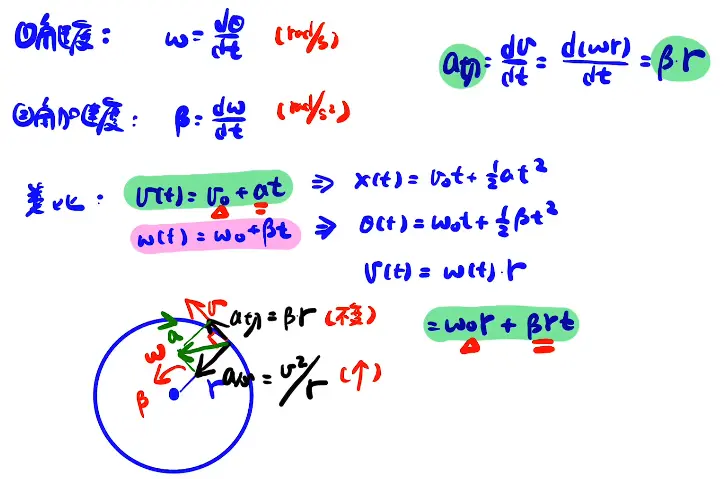 ①角速度: ω = dθ/dt (rad/s)
a(t) = dv/dt = d(ωr)/dt = β·r
②角加速度: β = dω/dt (rad/s²)
类比: v(t) = v₀ + at ⇒ x(t) = v₀t + ½at²
ω(t) = ω₀ + βt ⇒ θ(t) = ω₀t + ½βt²
v(t) = ω(t)·r
= ω₀r + βrt
v
a(t) = βr (不变)
a
ω
β
r
a(n) = v²/r (↑)